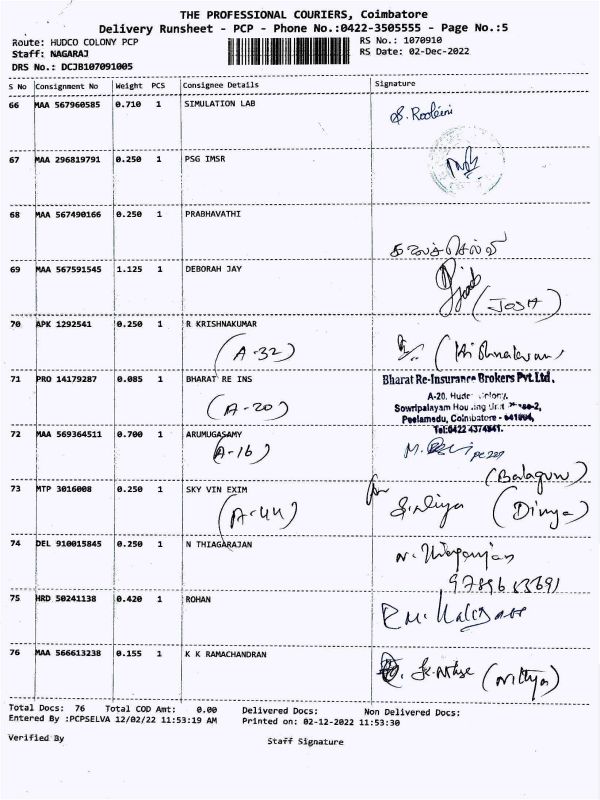 THE PROFESSIONAL COURIERS, Coimbatore
Delivery Runsheet - PCP - Phone No.:0422-3505555 - Page No.:5
Route: HUDCO COLONY PCP
RS No.: 1070910
Staff: NAGARAJ
RS Date: 02-Dec-2022
DRS No.: DCJB107091005
S No Consignment No Weight PCS Consignee Details Signature
66 MAA 567960585 0.710 1 SIMULATION LAB
67 MAA 296819791 0.250 1 PSG IMSR
68 MAA 567490166 0.250 1 PRABHAVATHI
69 MAA 567591545 1.125 1 DEBORAH JAY
70 APK 1292541 0.250 1 R KRISHNAKUMAR
(A-32)
71 PRO 14179287 0.085 1 BHARAT RE INS
Bharat Re-Insurance Brokers Pvt.Ltd.
(A-20)
A-20, Colony,
Sowripalayam
Peelamedu, Coimbatore - 641004,
Tel:0422 4374841.
72 MAA 569364511 0.700 1 ARUMUGASAMY
(A-16)
73 MTP 3016008 0.250 1 SKY VIN EXIM
(A-44)
(Divya)
74 DEL 910015845 0.250 1 N THIAGARAJAN
75 HRD 50241138 0.420 1 ROHAN
76 MAA 566613238 0.155 1 K K RAMACHANDRAN
(Nithya)
Total Docs: 76 Total COD Amt: 0.00 Delivered Docs: Non Delivered Docs:
Entered By :PCPSELVA 12/02/22 11:53:19 AM Printed on: 02-12-2022 11:53:30
Verified By Staff Signature